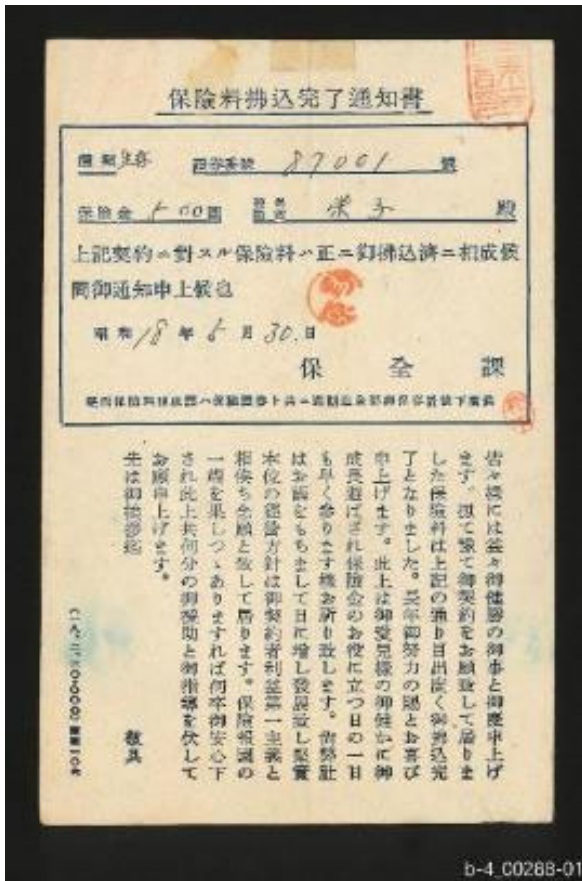 保險料拂込完了通知書
種類 生存 證券番號 87001 號
保險金 500圓 榮子 殿
上記契約ニ對スル保險料ハ正ニ御拂込濟ニ相成候
間御通知申上候也
昭和 18 年 5 月 30 日
保全課
皆々樣には益々御健勝の御事と御慶申上げ
ます。扨て豫て御契約をお願致して居りま
した保險料は上記の通り目出度く御拂込完
了となりました。長年御努力の賜とお喜び
申上げます。此上は御愛兒樣の御健かに御
成長遊ばされ保險金のお役に立つ日の一日
も早く參ります樣お祈り致します。尙弊社
はお蔭をもちまして日に增し發展致し堅實
本位の經營方針は御契約者利益第一主義と
相俟ち念願と致して居ります。保險報國の
一端を果しつゝありますれば何卒御安心下
され此上共何分の御援助と御指導を伏して
お願申上げます。
先は御挨拶迄
敬具
b-4_00288-01